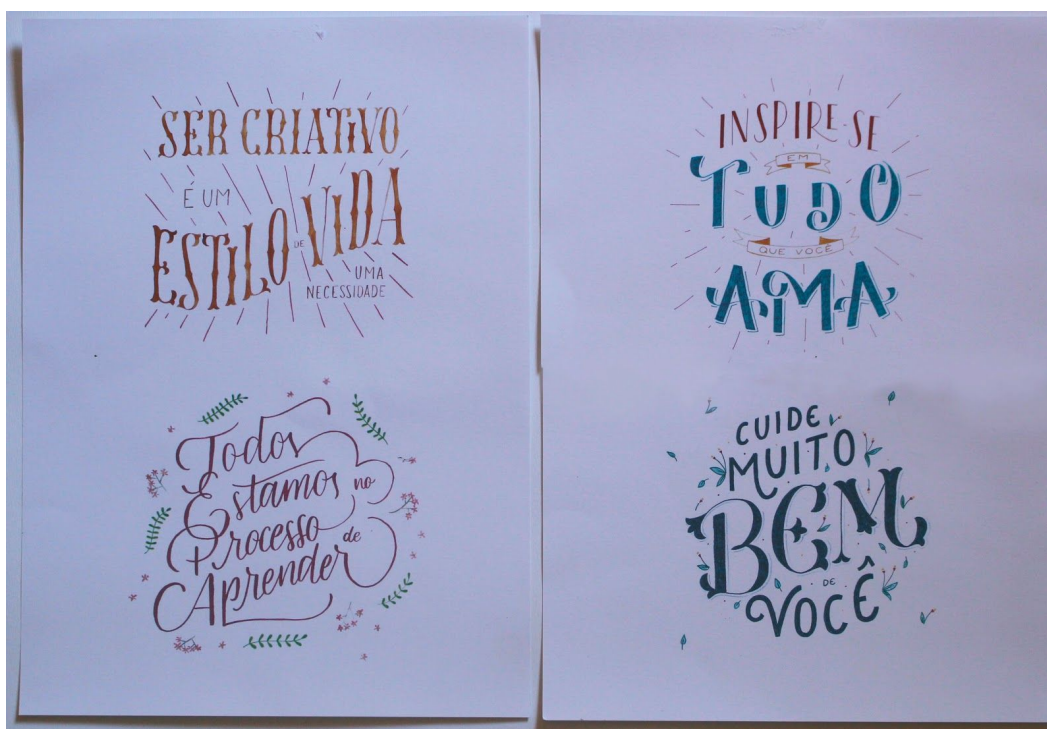 SER CRIATIVO
É UM
ESTILO DE VIDA
UMA
NECESSIDADE
Todos
Estamos no
Processo de
Aprender
INSPIRE-SE
EM
TUDO
QUE VOCÊ
AMA
CUIDE
MUITO
BEM
DE
VOCÊ